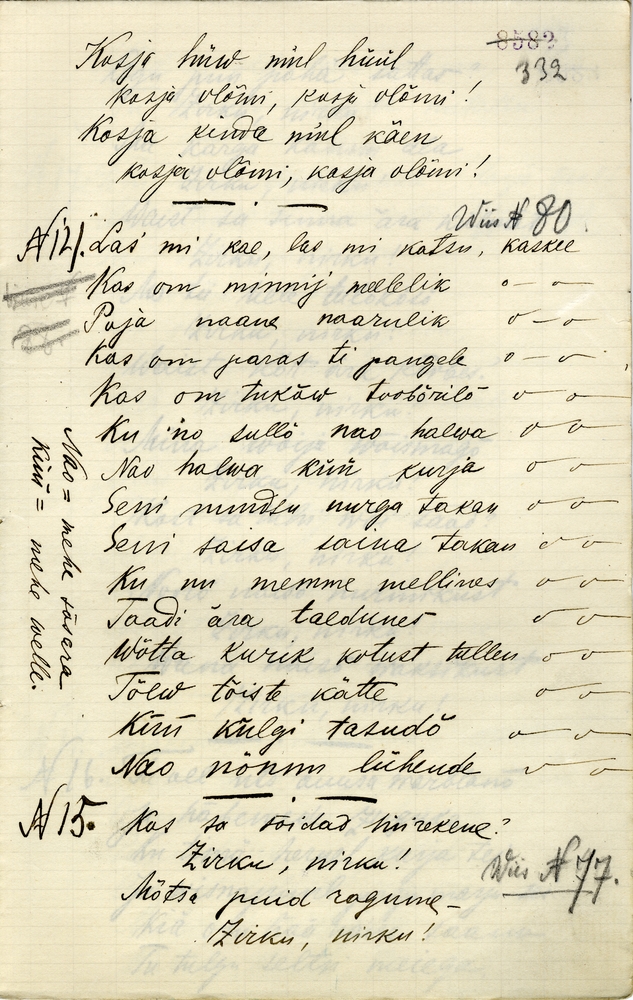 8589
332
Kosja hüw miul hüül
kosja olõmi, kosja olõmi!
Kosja kinda miul käen
kosja olõmi, kosja olõmi!
Wiis № 80
№ 121. Las mi kae, las mi katsu, kaskee
Kas om minnij meelelik
Poja naane naarulik
Kas om paras ti pangele
Kas om tukõw toobõrilõ
Ku no sullõ nao halwa
Nao halwa küü kurja
Seni nurga takan
Seni saisa saina takan
Ku nu memme mellines
Taadi ära taldunes
Wõtta kurik kotust tullen
Tõlw tõiste kätte
Küü külgi tasudõ
Nao nõnnu lühende
Nao = mehe sõsera
Küü = mehe welle.
№ 15. Kas sa sõidad hiirekene?
Zirku, nirku!
Wiis № 77.
Mõtsa puid raguma –
Zirku, nirku!